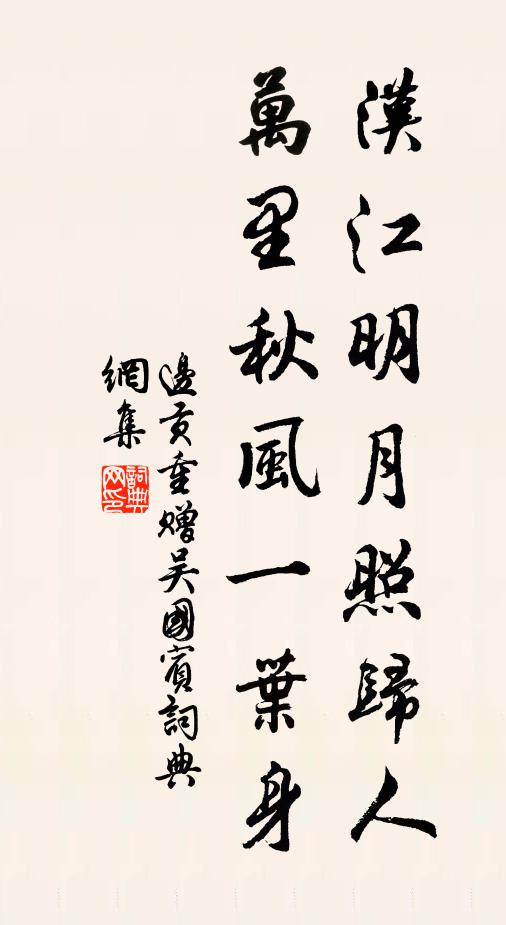 漢江明月照歸人
萬里秋風一葉身
邊貢重贈吳國賓詞典
網集
詞典網印